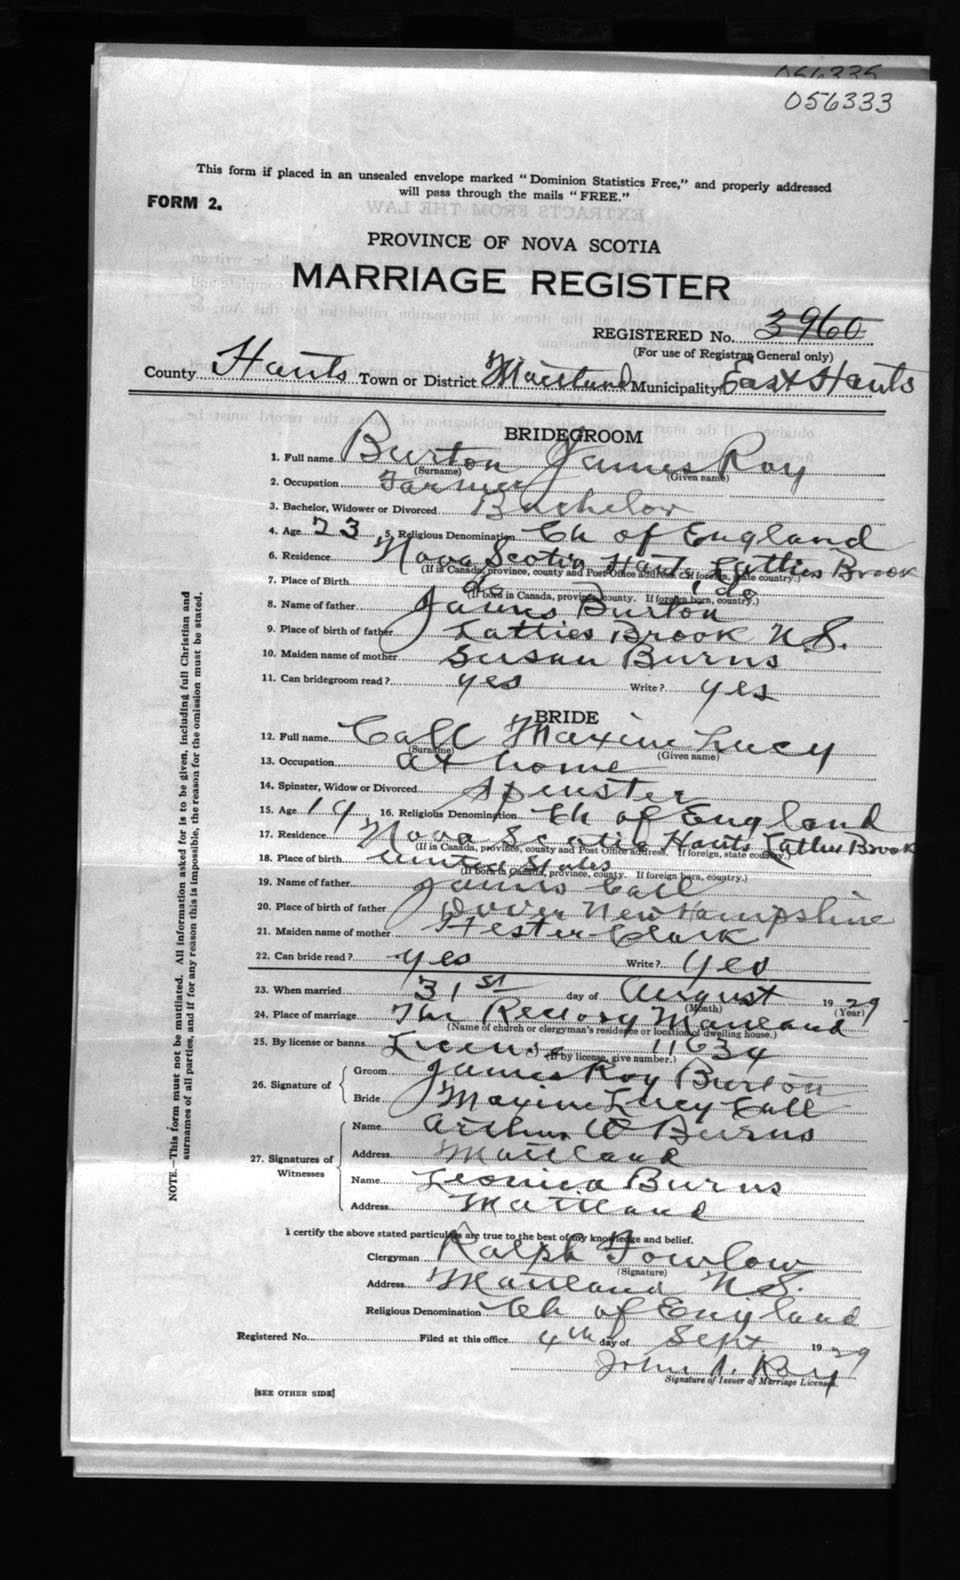 056335
056333
This form if placed in an unsealed envelope marked "Dominion Statistics Free," and properly addressed
will pass through the mails "FREE."
FORM 2.
PROVINCE OF NOVA SCOTIA
MARRIAGE REGISTER
REGISTERED No. 3960
(For use of Registrar General only)
County Hants Town or District Maitland Municipality East Hants
BRIDEGROOM
1. Full name Burton James Roy
(Surname) (Given name)
2. Occupation Farmer
3. Bachelor, Widower or Divorced Bachelor
4. Age 23 5. Religious Denomination Ch of England
6. Residence Nova Scotia Hants Latties Brook
(If in Canada, province, county and Post Office address. If foreign, state country.)
7. Place of Birth do do
(If born in Canada, province, county. If foreign born, country.)
8. Name of father James Burton
9. Place of birth of father Latties Brook N.S.
10. Maiden name of mother Susan Burns
11. Can bridegroom read? yes Write? yes
BRIDE
12. Full name Call Maxine Lucy
(Surname) (Given name)
13. Occupation at home
14. Spinster, Widow or Divorced Spinster
15. Age 19 16. Religious Denomination Ch of England
17. Residence Nova Scotia Hants Latties Brook
(If in Canada, province, county and Post Office address. If foreign, state country.)
18. Place of birth United States
(If born in Canada, province, county. If foreign born, country.)
19. Name of father James Call
20. Place of birth of father Dover New Hampshire
21. Maiden name of mother Hester Clark
22. Can bride read? yes Write? yes
23. When married 31st day of August 1929
(Month) (Year)
24. Place of marriage The Rectory Maitland
(Name of church or clergyman's residence or location of dwelling house.)
25. By license or banns License 11634
(If by license, give number.)
26. Signature of Groom James Roy Burton
Bride Maxine Lucy Call
27. Signatures of Witnesses Name Arthur W Burns
Address Maitland
Name Leonica Burns
Address Maitland
I certify the above stated particulars are true to the best of my knowledge and belief.
Clergyman Ralph Fowlow
(Signature)
Address Maitland N.S.
Religious Denomination Ch of England
Registered No. Filed at this office 4th day of Sept. 1929
John A. Ray
Signature of Issuer of Marriage Licenses.
[SEE OTHER SIDE]
NOTE.—This form must not be mutilated. All information asked for is to be given, including full Christian and
surnames of all parties, and if for any reason this is impossible, the reason for the omission must be stated.